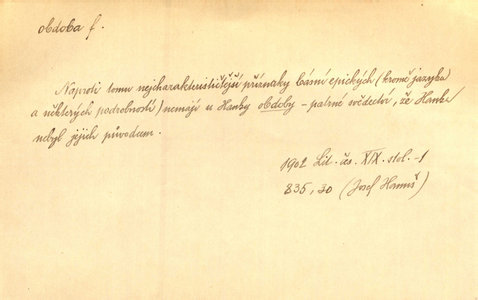 obdoba f.
Naproti tomu nejcharakterističtější příznaky básní epických (kromě jazyka
a některých podrobností) nemají u Hanky obdoby – patrné svědectví, že Hanka
nebyl jejich původcem.
1902 Lit. čes. XIX. stol. -1
835, 30 (Josef Hanuš)